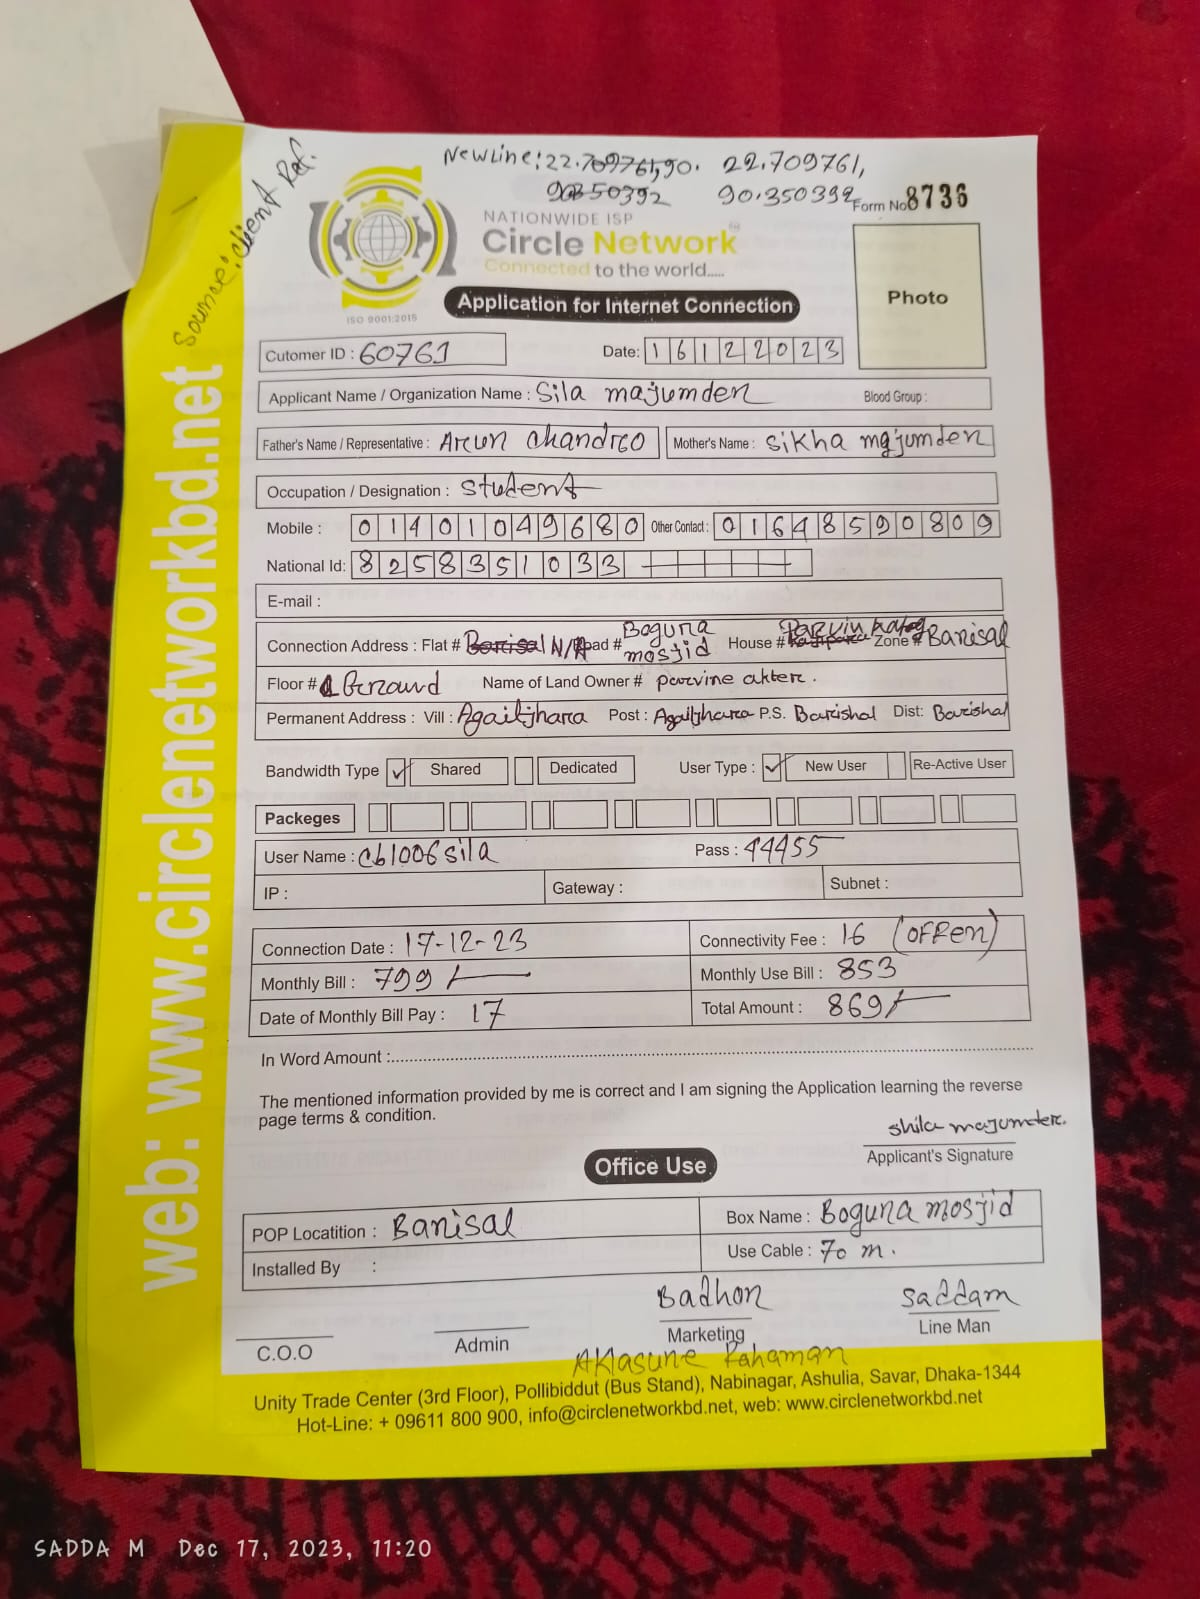 Source: Client Ref.
NewLine: 22.709761,90. 22.709761,
90350392 90.350392
Form No 8736
NATIONWIDE ISP
Circle Network
Connected to the world.....
ISO 9001:2015
Application for Internet Connection
Photo
Cutomer ID : 60761
Date: 16122023
Applicant Name / Organization Name : Sila majumder Blood Group :
Father's Name / Representative : Arun Chandro Mother's Name : Sikha majumder
Occupation / Designation : Student
Mobile : 01401049680 Other Contact : 01648590809
National Id: 8258351033
E-mail :
Connection Address : Flat # Barisal N/A Road # Boguna mosjid House # Parvin Zone # Barisal
Floor # Ground Name of Land Owner # parvine akter.
Permanent Address : Vill : Agailjhara Post : Agailjhara P.S. Barishal Dist: Barishal
Bandwidth Type ✓ Shared Dedicated User Type : ✓ New User Re-Active User
Packeges
User Name : cb1006sila Pass : 44455
IP : Gateway : Subnet :
Connection Date : 17-12-23 Connectivity Fee : 16 (OFFER)
Monthly Bill : 799/- Monthly Use Bill : 853
Date of Monthly Bill Pay : 17 Total Amount : 869/-
In Word Amount :
The mentioned information provided by me is correct and I am signing the Application learning the reverse
page terms & condition.
Shila majumder.
Applicant's Signature
Office Use
POP Locatition : Barisal Box Name : Boguna mosjid
Installed By : Use Cable : 70 m.
Badhon Saddam
C.O.O Admin Marketing Line Man
Rahaman
Unity Trade Center (3rd Floor), Pollibiddut (Bus Stand), Nabinagar, Ashulia, Savar, Dhaka-1344
Hot-Line: + 09611 800 900, info@circlenetworkbd.net, web: www.circlenetworkbd.net
web: www.circlenetworkbd.net
SADDA M Dec 17, 2023, 11:20